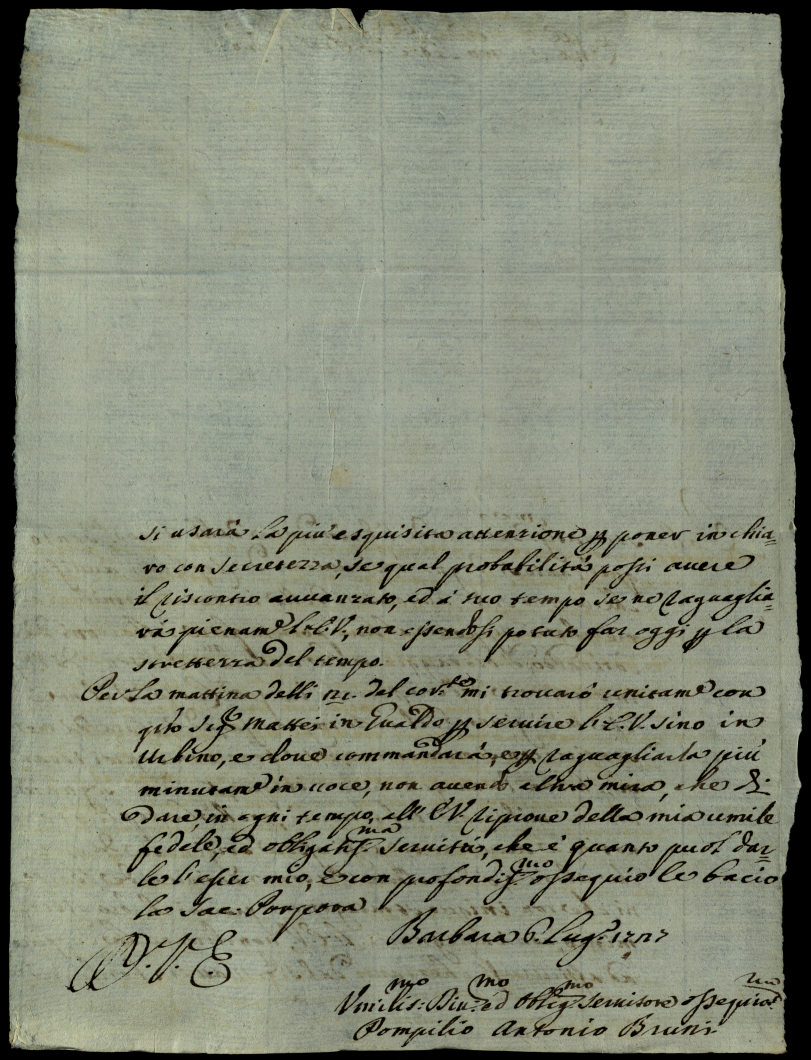 si usarà la più esquisita attenzione p poner in chia=
ro con secretezza, se qual probabilità possi avere
il riscontro avvanzato, ed à suo tempo se ne raguaglia=
rà pienam.e l'E.V., non essendosi potuto far oggi p la
strettezza del tempo.
Per la mattina delli del cor.te mi trovarò unitam.e con
q̃to Sig.r Mattei in p servire l'E.V. sino in
Urbino, e dove commandarà, e p raguagliarla più
minutam.e in voce, non avendo altra mira, che di
dare, in ogni tempo, all'E.V. riprove della mia umile
fedele, ed obligatis.ma servitù, che è quanto puol dar=
le l'esser mio, e con profondis.mo ossequio le bacio
la Sac. Porpora
Barbara 6. Lug.o 1727
D. V. E.
Umilis.mo Div.mo ed Oblig.mo Servitore ossequios.mo
Pompilio Antonio Bruni